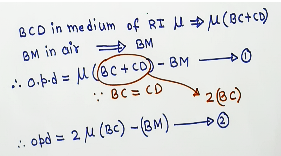 BCD in medium of RI μ ⇒ μ(BC+CD)
BM in air ⟹ BM
∴ o.p.d = μ(BC + CD) - BM ⟶ ①
∵ BC = CD → 2(BC)
∴ opd = 2 μ (BC) - (BM) ⟶ ②